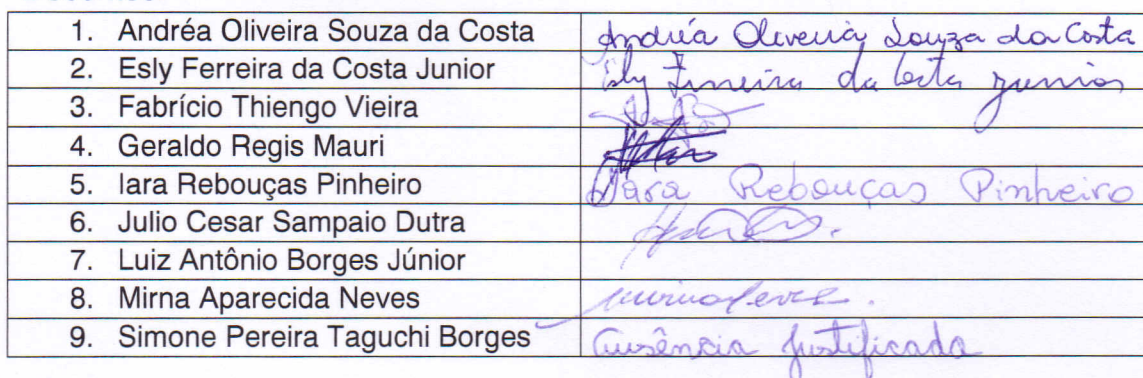 1. Andréa Oliveira Souza da Costa Andréa Oliveira Souza da Costa
2. Esly Ferreira da Costa Junior Esly Ferreira da Costa Junior
3. Fabrício Thiengo Vieira
4. Geraldo Regis Mauri
5. Iara Rebouças Pinheiro Iara Rebouças Pinheiro
6. Julio Cesar Sampaio Dutra
7. Luiz Antônio Borges Júnior
8. Mirna Aparecida Neves mirnaneves.
9. Simone Pereira Taguchi Borges Ausência justificada